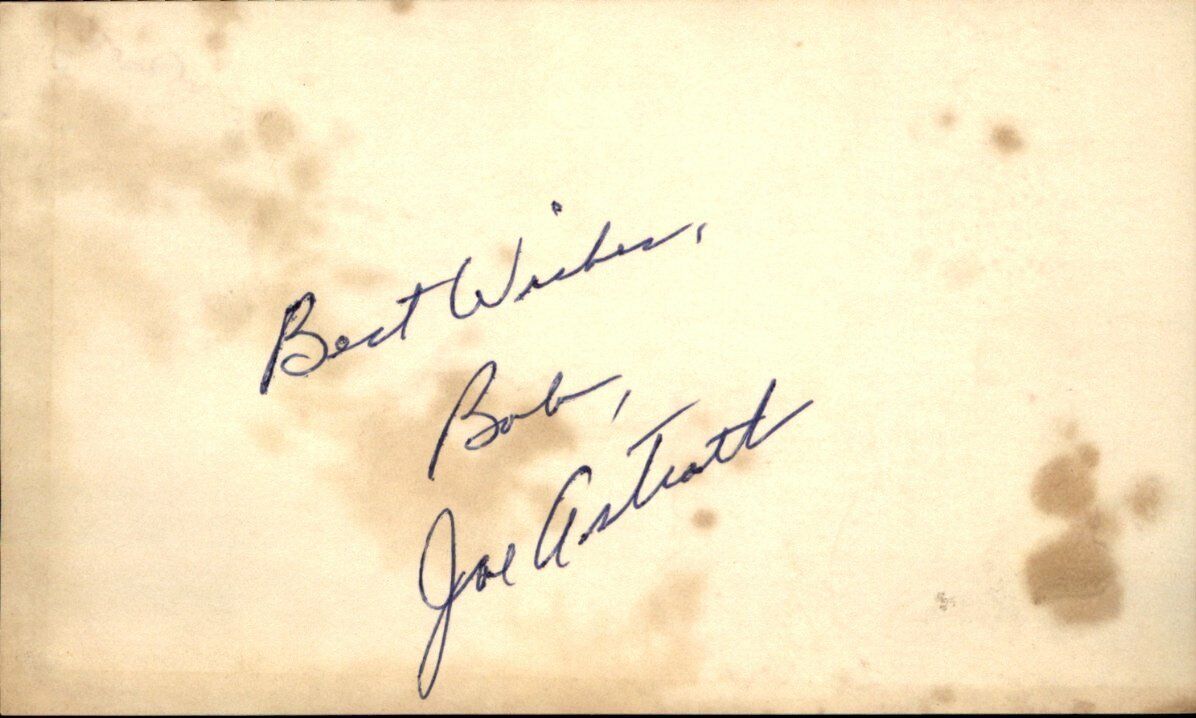 Best Wishes,
Bob,
Joe Astroth